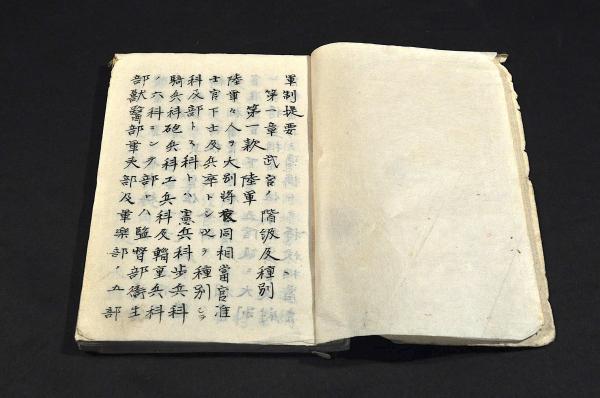 軍制提要
第一章武官ノ階級及種別
第一款陸軍
陸軍々人ヲ大別将官同相當官准
士官下士及兵卒トシ之ヲ種別シテ
科及部トス科トハ憲兵科歩兵科
騎兵科砲兵科工兵科及輜重兵科
ノ六科ニシテ部トハ監督部衛生
部獣醫部軍夫部及軍樂部ノ五部